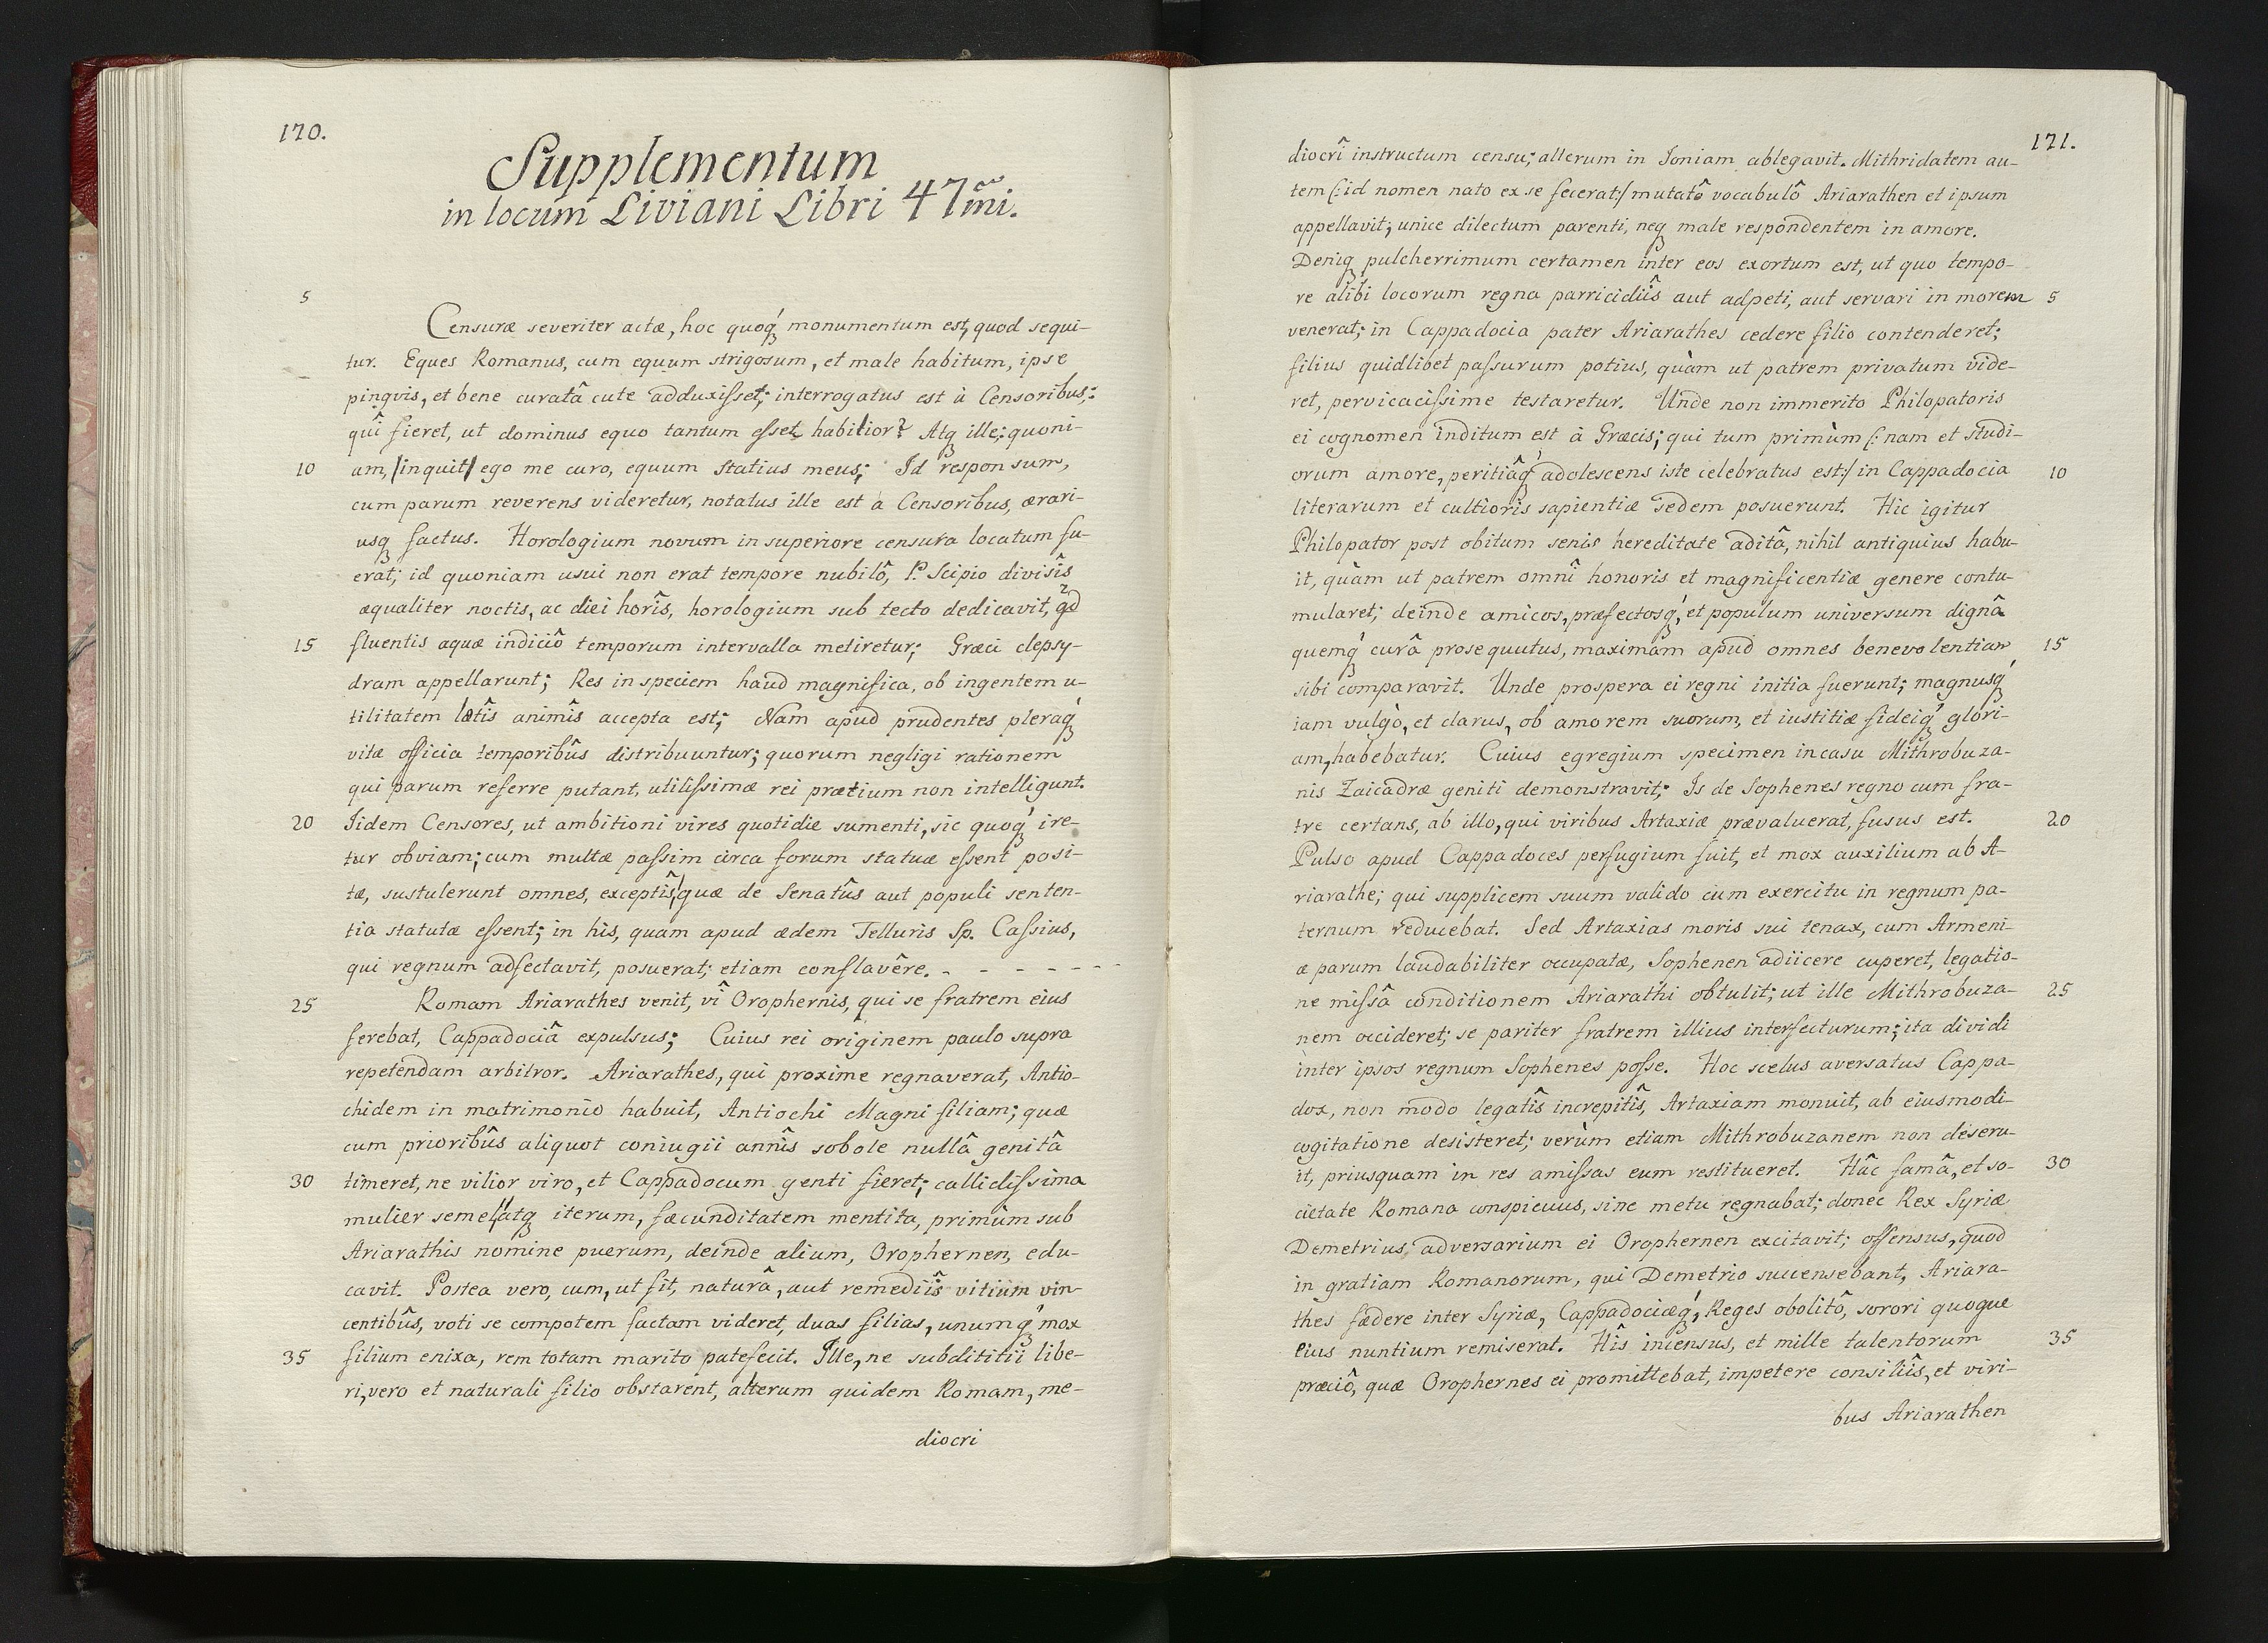 170.
Supplementum
in locum Liviani Libri 47mi.
5
Censuræ severiter actæ, hoc quoq́ monumentum est, quod sequi-
tur. Eques Romanus, cum equum strigosum, et male habitum, ipse
pingvis, et bene curatâ cute adduxisset; interrogatus est à Censoribus;:
quî fieret, ut dominus equo tantum esset habitior? Atq ille: quoni-
10 am, /inquit/ ego me curo, equum Statius meus; Id responsum,
cum parum reverens videretur, notatus ille est à Censoribus, ærari-
usq factus. Horologium novum in superiore censura locatum fu-
erat; id quoniam usui non erat tempore nubilô, P. Scipio divisîs
æqualiter noctis, ac diei horîs, horologium sub tecto dedicavit, qd
15 fluentis aquæ indiciô temporum intervalla metiretur; Græci clepsy-
dram appellarunt; Res in speciem haud magnifica, ob ingentem u-
tilitatem lætîs animîs accepta est; Nam apud prudentes pleraq́
vitæ officia temporibûs distribuuntur; quorum negligi rationem
qui parum referre putant, utilissimæ rei prætium non intelligunt.
20 Iidem Censores, ut ambitioni vires quotidie sumenti, sic quoq́ ire-
tur obviam; cum multæ passim circa forum statuæ essent posi-
tæ, sustulerunt omnes, exceptîs, quæ de Senatûs aut populi senten-
tia statutæ essent; in his, quam apud ædem Telluris Sp. Cassius,
qui regnum adfectavit, posuerat; etiam conflavêre. - - - - - - -
25 Romam Ariarathes venit, vî Orophernis, qui se fratrem eius
ferebat, Cappadociâ expulsus; Cuius rei originem paulo supra
repetendam arbitror. Ariarathes, qui proxime regnaverat, Antio-
chidem in matrimonio habuit, Antiochi Magni filiam; quæ
cum prioribûs aliquot coniugii annîs sobole nullâ genitâ
30 timeret, ne vilior viro, et Cappadocum genti fieret; callidissima
mulier semel atq iterum, fæcunditatem mentita, primùm sub
Ariarathis nomine puerum, deinde alium, Orophernen, edu-
cavit. Postea vero, cum, ut fit, naturâ, aut remediîs vitium vin-
centibûs, voti se compotem factam videret, duas filias, unumq́ mox
35 filium enixa, rem totam marito patefecit. Ille, ne subdititii libe-
ri, vero et naturali filio obstarent, alterum quidem Romam, me-
diocri
171.
diocrî instructum censu; alterum in Ioniam ablegavit. Mithridatem au-
tem (: id nomen nato ex se fecerat:/ mutatô vocabulô Ariarathen et ipsum
appellavit; unice dilectum parenti, neq male respondentem in amore.
Deniq pulcherrimum certamen inter eos exortum est, ut quo tempo-
re alibi locorum regna parricidiîs aut adpeti, aut servari in morem 5
venerat; in Cappadocia pater Ariarathes cedere filio contenderet;
filius quidlibet passurum potius, quàm ut patrem privatum vide-
ret, pervicacissime testaretur. Unde non immerito Philopatoris
ei cognomen inditum est à Græcis; qui tum primùm (: nam et studi-
orum amore, peritiâq́ adolescens iste celebratus est:/ in Cappadocia 10
literarum et cultioris sapientiæ sedem posuerunt. Hic igitur
Philopator post obitum senis hereditate aditâ, nihil antiquius habu-
it, quàm ut patrem omnî honoris et magnificentiæ genere contu-
mularet; deinde amicos, præfectosq́, et populum universum dignâ
quemq́ curâ prosequutus, maximam apud omnes benevolentiam 15
sibi comparavit. Unde prospera ei regni initia fuerunt; magnusq́
iam vulgò, et clarus, ob amorem suorum, et iustitiæ fideiq́ glori-
am, habebatur. Cuius egregium specimen in casu Mithrobuza-
nis Zaicadræ geniti demonstravit; Is de Sophenes regno cum fra-
tre certans, ab illo, qui viribus Artaxiæ prævaluerat, fusus est. 20
Pulso apud Cappadoces perfugium fuit, et mox auxilium ab A-
riarathe; qui supplicem suum valido cum exercitu in regnum pa-
ternum reducebat. Sed Artaxias moris sui tenax, cum Armeni-
æ parum laudabiliter occupatæ, Sophenen adiicere cuperet, legatio-
ne missâ conditionem Ariarathi obtulit; ut ille Mithrobuza- 25
nem occideret; se pariter fratrem illius interfecturum; ita dividi
inter ipsos regnum Sophenes posse. Hoc scelus aversatus Cappa-
dox, non modo legatîs increpitîs, Artaxiam monuit, ab eiusmodi-
cogitatione desisteret; verùm etiam Mithrobuzanem non deseru-
it, priusquam in res amissas eum restitueret. Hâc famâ, et so- 30
cietate Romana conspicuus, sine metu regnabat; donec Rex Syriæ
Demetrius, adversarium ei Orophernen excitavit; offensus, quod
in gratiam Romanorum, qui Demetrio succensebant, Ariara-
thes fædere inter Syriæ, Cappadociæq́, Reges obolitô, sorori quoque
eius nuntium remiserat. Hîs incensus, et mille talentorum 35
præciô, quæ Orophernes ei promittebat, impetere consiliîs, et viri-
bus Ariarathen